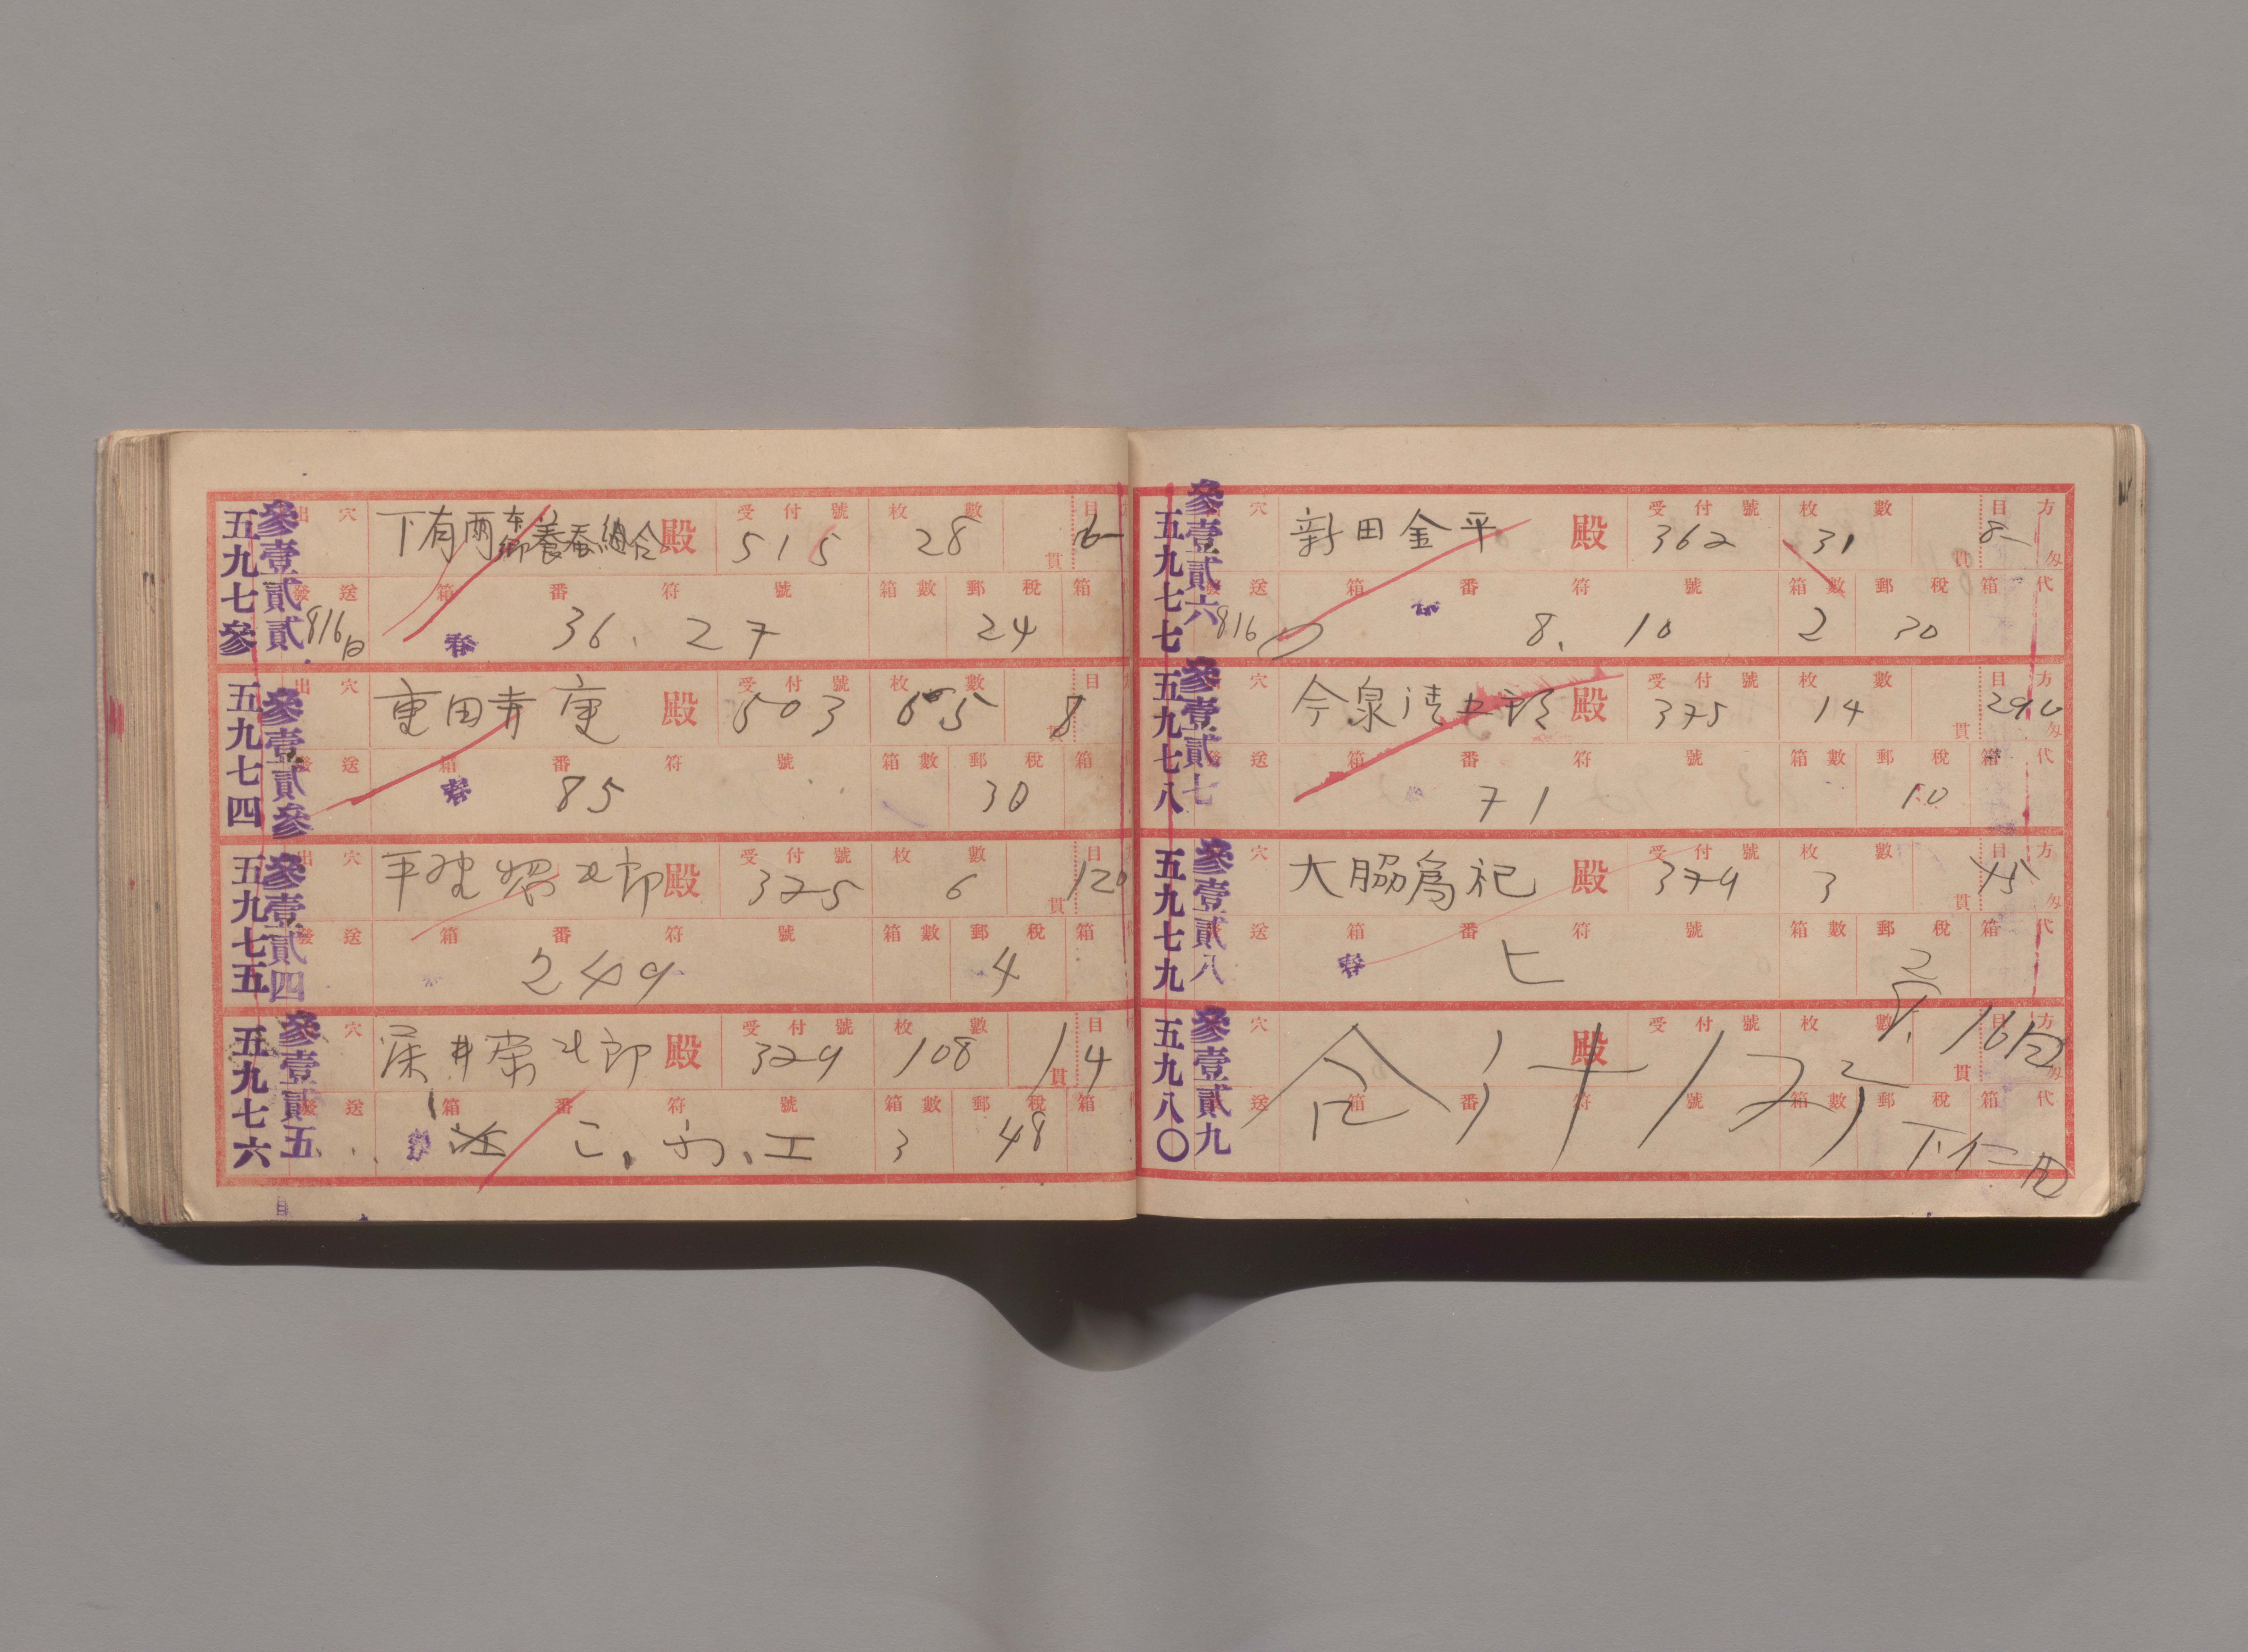 五九七參
參壹貳貳
出穴 下有兩 養蚕組合 殿 受付號 515 枚數 28 貫目 6-
發送 8/16日 箱番符號 春 36. 27 箱數 郵稅 24 箱
五九七四
參壹貳參
出穴 重田寿 殿 受付號 503 枚數 65 貫目 8
發送 箱番符號 春 85 箱數 郵稅 30 箱
五九七五
參壹貳四
出穴 平野 郎 殿 受付號 325 枚數 6 貫目 120
發送 箱番符號 249 箱數 郵稅 4 箱
五九七六
參壹貳五
穴 深井 郎 殿 受付號 329 枚數 108 貫目 14
發送 箱番符號 春 工 箱數 3 郵稅 48 箱
五九七七
參壹貳六
穴 新田金平 殿 受付號 362 枚數 31 貫目方匁 8-
送 8/16 箱番符號 8. 10 箱數 2 郵稅 30 箱代
五九七八
參壹貳七
穴 今泉清 郎 殿 受付號 375 枚數 14 貫目方匁 290
送 箱番符號 71 箱數 郵稅 10 箱代
五九七九
參壹貳八
穴 大脇為祀 殿 受付號 379 枚數 3 貫目方匁 45
送 箱番符號 春 ヒ 箱數 郵稅 2 箱代
五九八〇
參壹貳九
穴 殿 受付號 枚數 貫目方匁 16日
送 箱番符號 箱數 郵稅 箱代
合計 下仁田